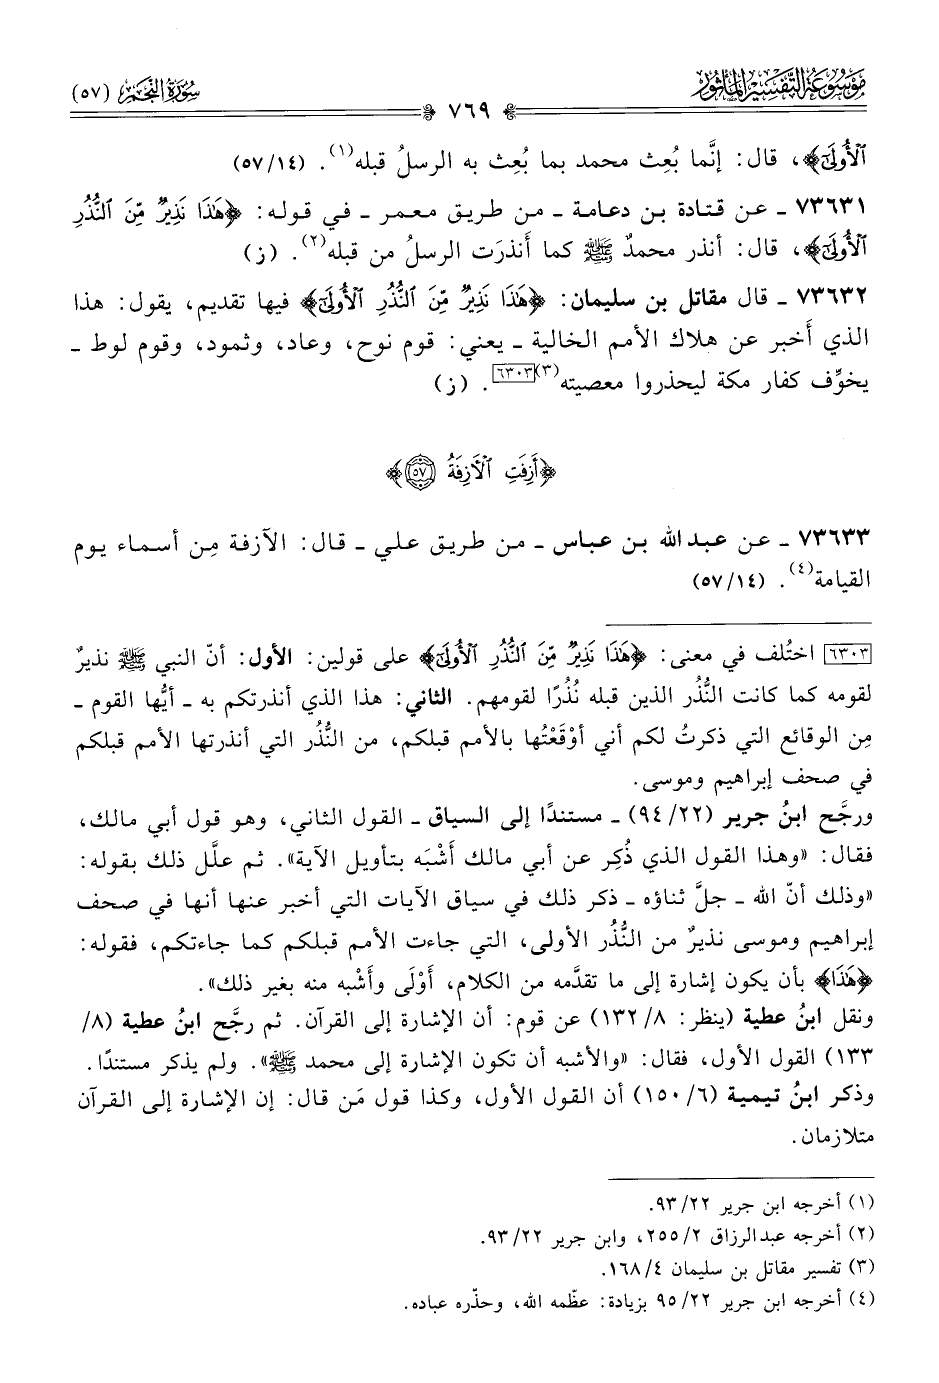 مَوْسُوعَة التَّفْسِير المَأثُور
سُورَةُ النَّجْمِ (٥٧)
٧٦٩
ٱلْأُولَىٰٓ﴾، قال: إنَّما بُعِث محمد بما بُعِث به الرسلُ قبله(١). (٥٧/١٤)
٧٣٦٣١ ـ عن قتادة بن دعامة ـ من طريق معمر ـ في قوله: ﴿هَٰذَا نَذِيرٌ مِّنَ ٱلنُّذُرِ
ٱلْأُولَىٰٓ﴾، قال: أنذر محمدٌ ﷺ كما أَنذرَت الرسلُ من قبله(٢). (ز)
٧٣٦٣٢ ـ قال مقاتل بن سليمان: ﴿هَٰذَا نَذِيرٌ مِّنَ ٱلنُّذُرِ ٱلْأُولَىٰٓ﴾ فيها تقديم، يقول: هذا
الذي أَخبر عن هلاك الأمم الخالية ـ يعني: قوم نوح، وعاد، وثمود، وقوم لوط ـ
يخوِّف كفار مكة ليحذروا معصيته(٣)[٦٣٠٣]. (ز)
﴿أَزِفَتِ ٱلْأَزِفَةُ ٥٧﴾
٧٣٦٣٣ ـ عن عبدالله بن عباس ـ من طريق علي ـ قال: الآزفة مِن أسماء يوم
القيامة(٤). (٥٧/١٤)
[٦٣٠٣] اختُلف في معنى: ﴿هَٰذَا نَذِيرٌ مِّنَ ٱلنُّذُرِ ٱلْأُولَىٰٓ﴾ على قولين: الأول: أنّ النبي ﷺ نذيرٌ
لقومه كما كانت النُّذُر الذين قبله نُذُرًا لقومهم. الثاني: هذا الذي أنذرتكم به ـ أيُّها القوم ـ
مِن الوقائع التي ذكرتُ لكم أني أوْقَعْتُها بالأمم قبلكم، من النُّذُر التي أنذرتها الأمم قبلكم
في صحف إبراهيم وموسى.
ورجَّح ابنُ جرير (٩٤/٢٢) ـ مستندًا إلى السياق ـ القول الثاني، وهو قول أبي مالك،
فقال: «وهذا القول الذي ذُكِر عن أبي مالك أَشْبَه بتأويل الآية». ثم علَّل ذلك بقوله:
«وذلك أنّ الله ـ جلَّ ثناؤه ـ ذكر ذلك في سياق الآيات التي أخبر عنها أنها في صحف
إبراهيم وموسى نذيرٌ من النُّذُر الأولى، التي جاءت الأمم قبلكم كما جاءتكم، فقوله:
﴿هَٰذَا﴾ بأن يكون إشارة إلى ما تقدَّمه من الكلام، أَوْلَى وأَشْبه منه بغير ذلك».
ونقل ابنُ عطية (ينظر: ١٣٢/٨) عن قوم: أن الإشارة إلى القرآن. ثم رجَّح ابنُ عطية (٨/
١٣٣) القول الأول، فقال: «والأشبه أن تكون الإشارة إلى محمد ﷺ». ولم يذكر مستندًا.
وذكر ابنُ تيمية (١٥٠/٦) أن القول الأول، وكذا قول مَن قال: إن الإشارة إلى القرآن
متلازمان.
(١) أخرجه ابن جرير ٩٣/٢٢.
(٢) أخرجه عبدالرزاق ٢٥٥/٢، وابن جرير ٩٣/٢٢.
(٣) تفسير مقاتل بن سليمان ١٦٨/٤.
(٤) أخرجه ابن جرير ٩٥/٢٢ بزيادة: عظّمه الله، وحذّره عباده.